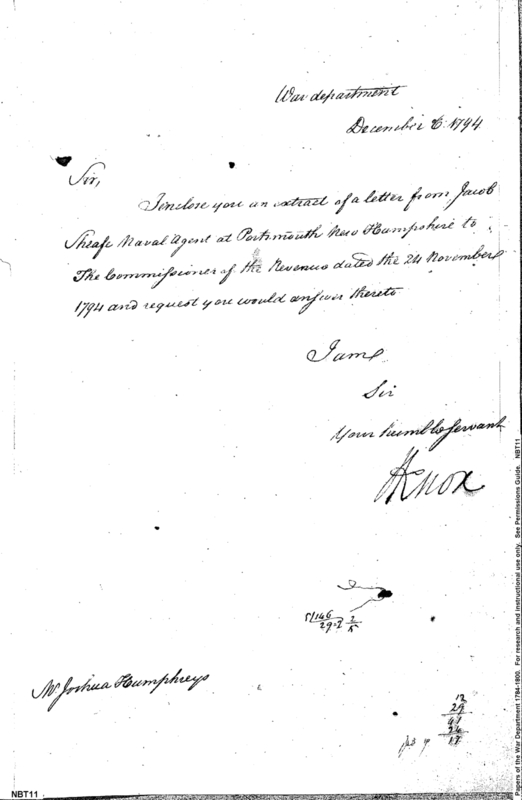 War department
December 6: 1794
Sir,
I enclose you an extract of a letter from Jacob
Sheafe Naval Agent at Portsmouth New Hampshire to
The Commissioner of the Revenue dated the 24 November
1794 and request you would answer thereto
I am
Sir
Your humble servant
HKnox
5/146
29.2 1/5
Mr Joshua Humphreys
12
29
41
24
17
NBT11
Papers of the War Department 1784-1800. For research and instructional use only. See Permissions Guide. NBT11